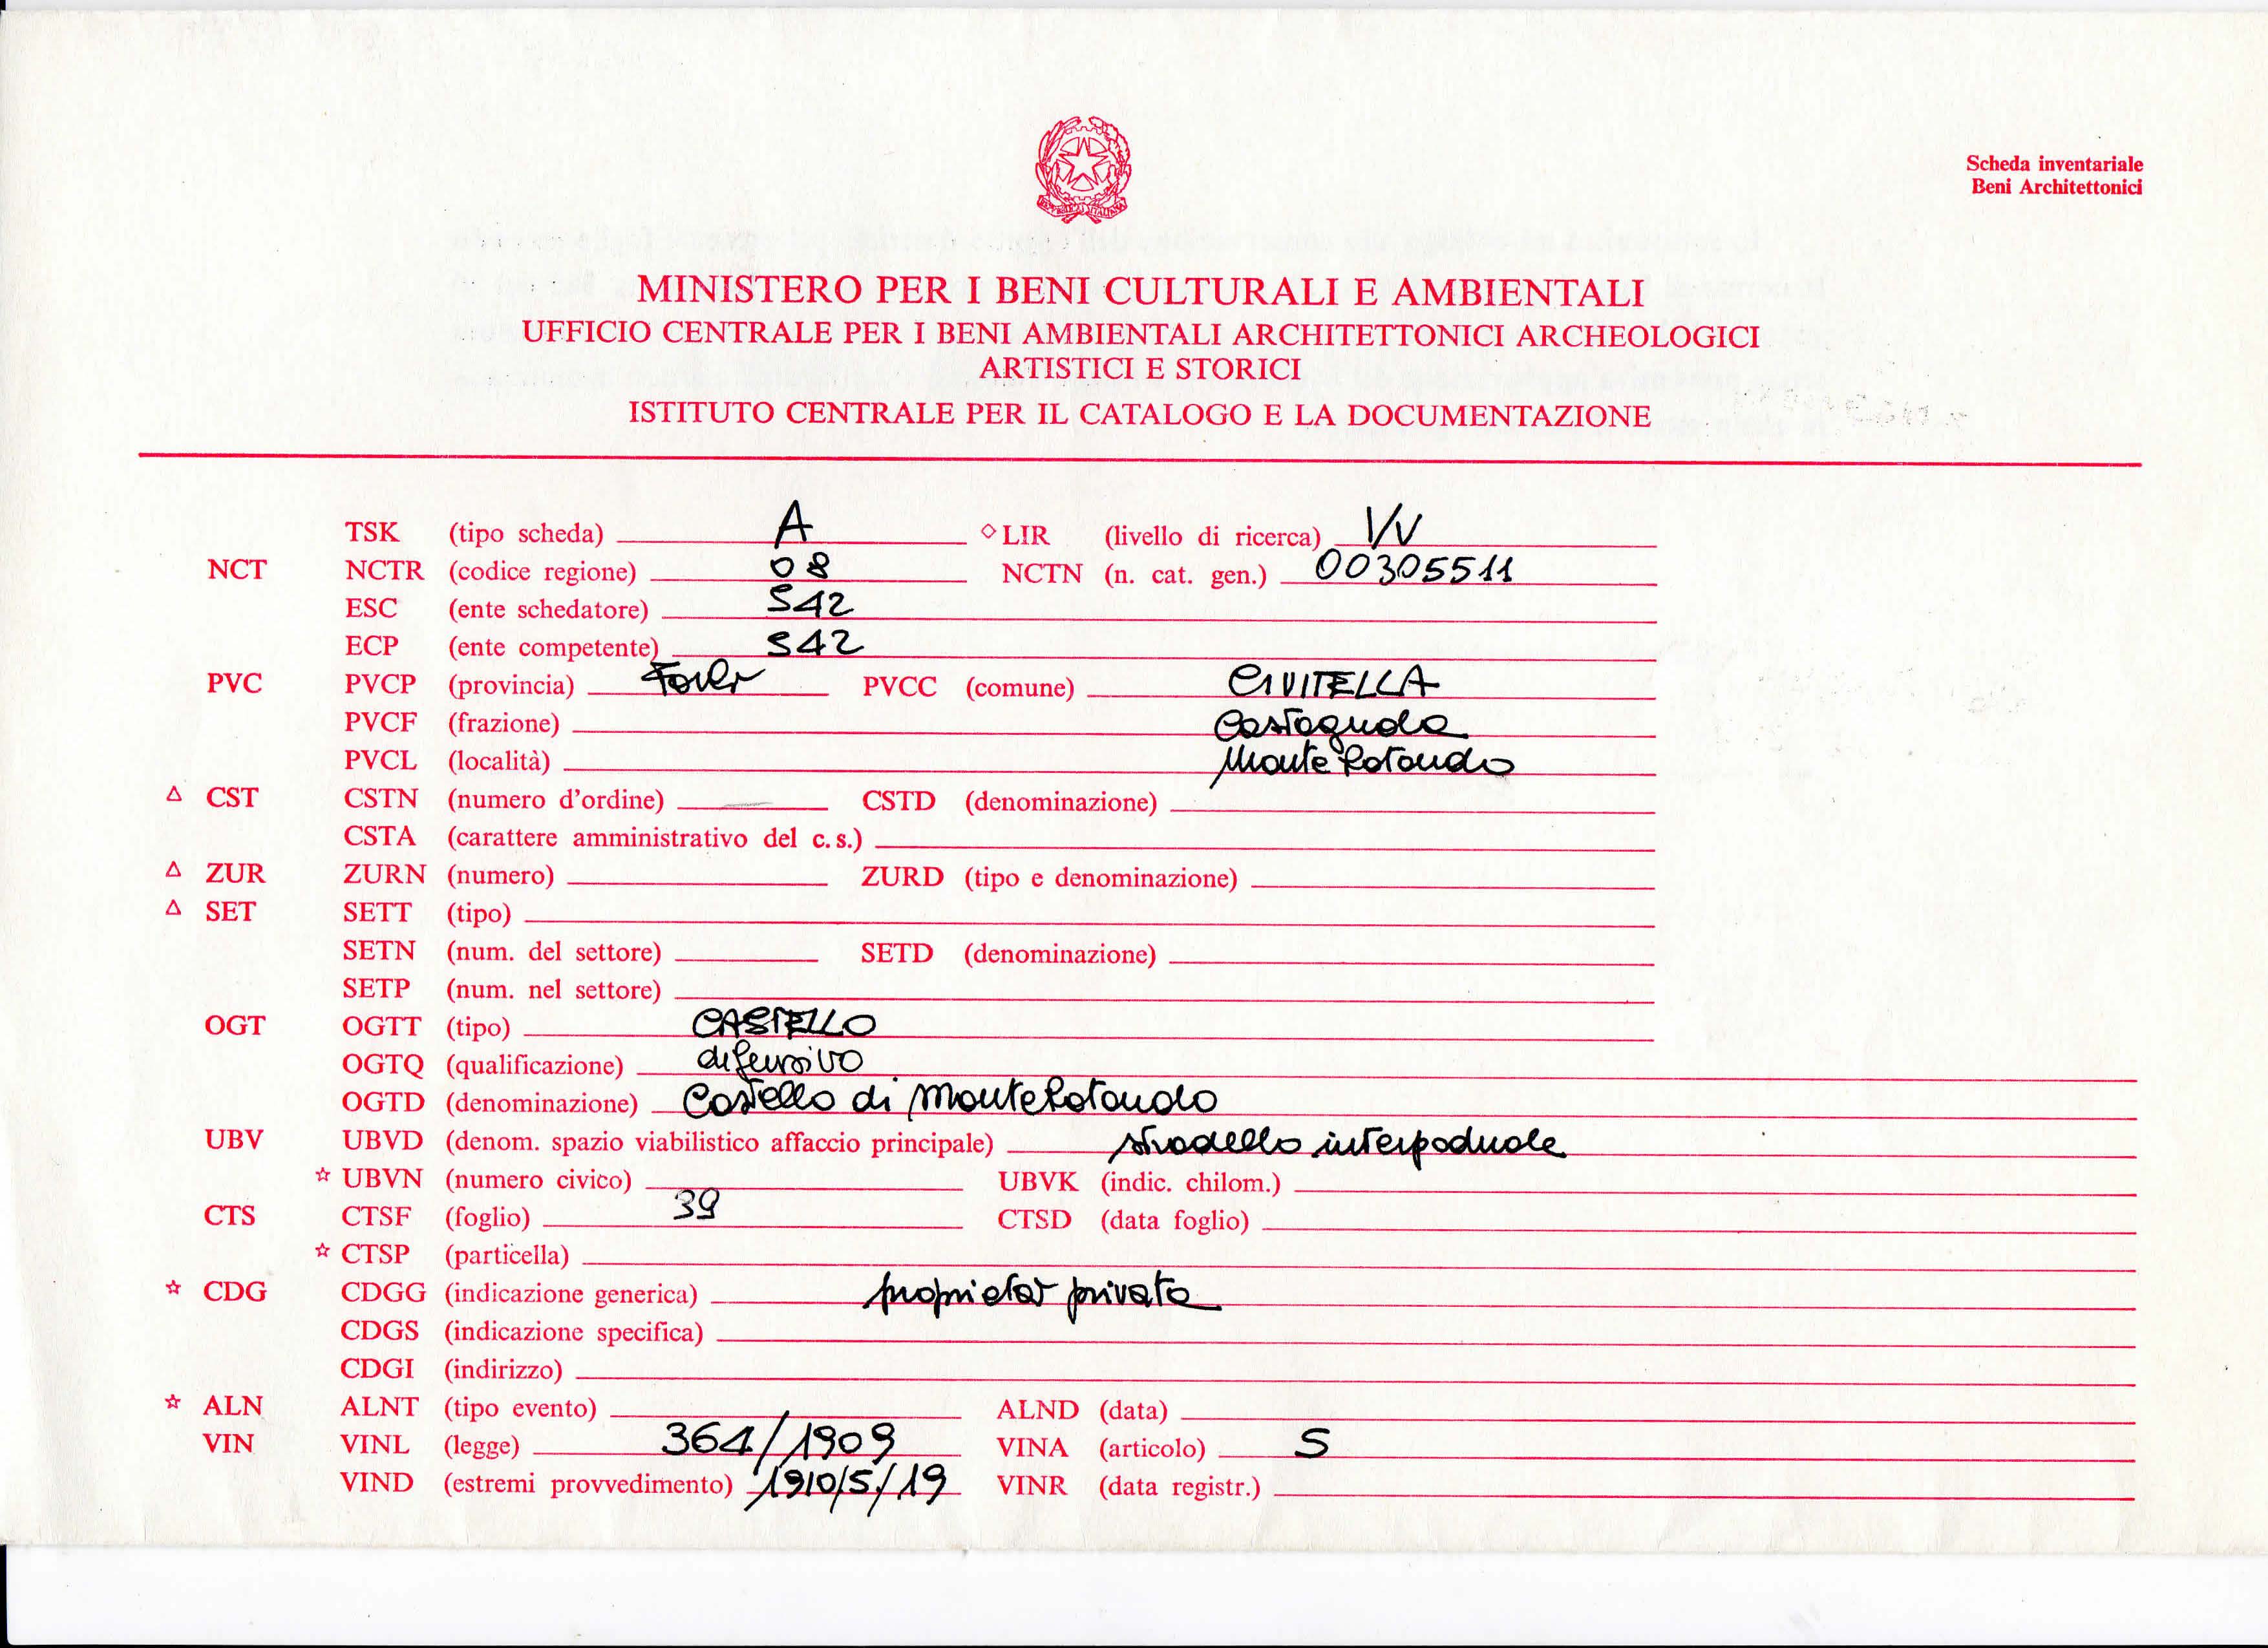 Scheda inventariale
Beni Architettonici
MINISTERO PER I BENI CULTURALI E AMBIENTALI
UFFICIO CENTRALE PER I BENI AMBIENTALI ARCHITETTONICI ARCHEOLOGICI
ARTISTICI E STORICI
ISTITUTO CENTRALE PER IL CATALOGO E LA DOCUMENTAZIONE
TSK (tipo scheda) A ◇ LIR (livello di ricerca) I/V
NCT NCTR (codice regione) 08 NCTN (n. cat. gen.) 00305511
ESC (ente schedatore) S42
ECP (ente competente) S42
PVC PVCP (provincia) Forlì PVCC (comune) CIVITELLA
PVCF (frazione) Castagnola
PVCL (località) Monte Rotondo
△ CST CSTN (numero d'ordine) CSTD (denominazione)
CSTA (carattere amministrativo del c.s.)
△ ZUR ZURN (numero) ZURD (tipo e denominazione)
△ SET SETT (tipo)
SETN (num. del settore) SETD (denominazione)
SETP (num. nel settore)
OGT OGTT (tipo) CASTELLO
OGTQ (qualificazione) difensivo
OGTD (denominazione) Castello di Monte Rotondo
UBV UBVD (denom. spazio viabilistico affaccio principale) stradello interpoderale
☆ UBVN (numero civico) UBVK (indic. chilom.)
CTS CTSF (foglio) 39 CTSD (data foglio)
☆ CTSP (particella)
☆ CDG CDGG (indicazione generica) proprietà privata
CDGS (indicazione specifica)
CDGI (indirizzo)
☆ ALN ALNT (tipo evento) ALND (data)
VIN VINL (legge) 364/1909 VINA (articolo) 5
VIND (estremi provvedimento) 1910/5/19 VINR (data registr.)